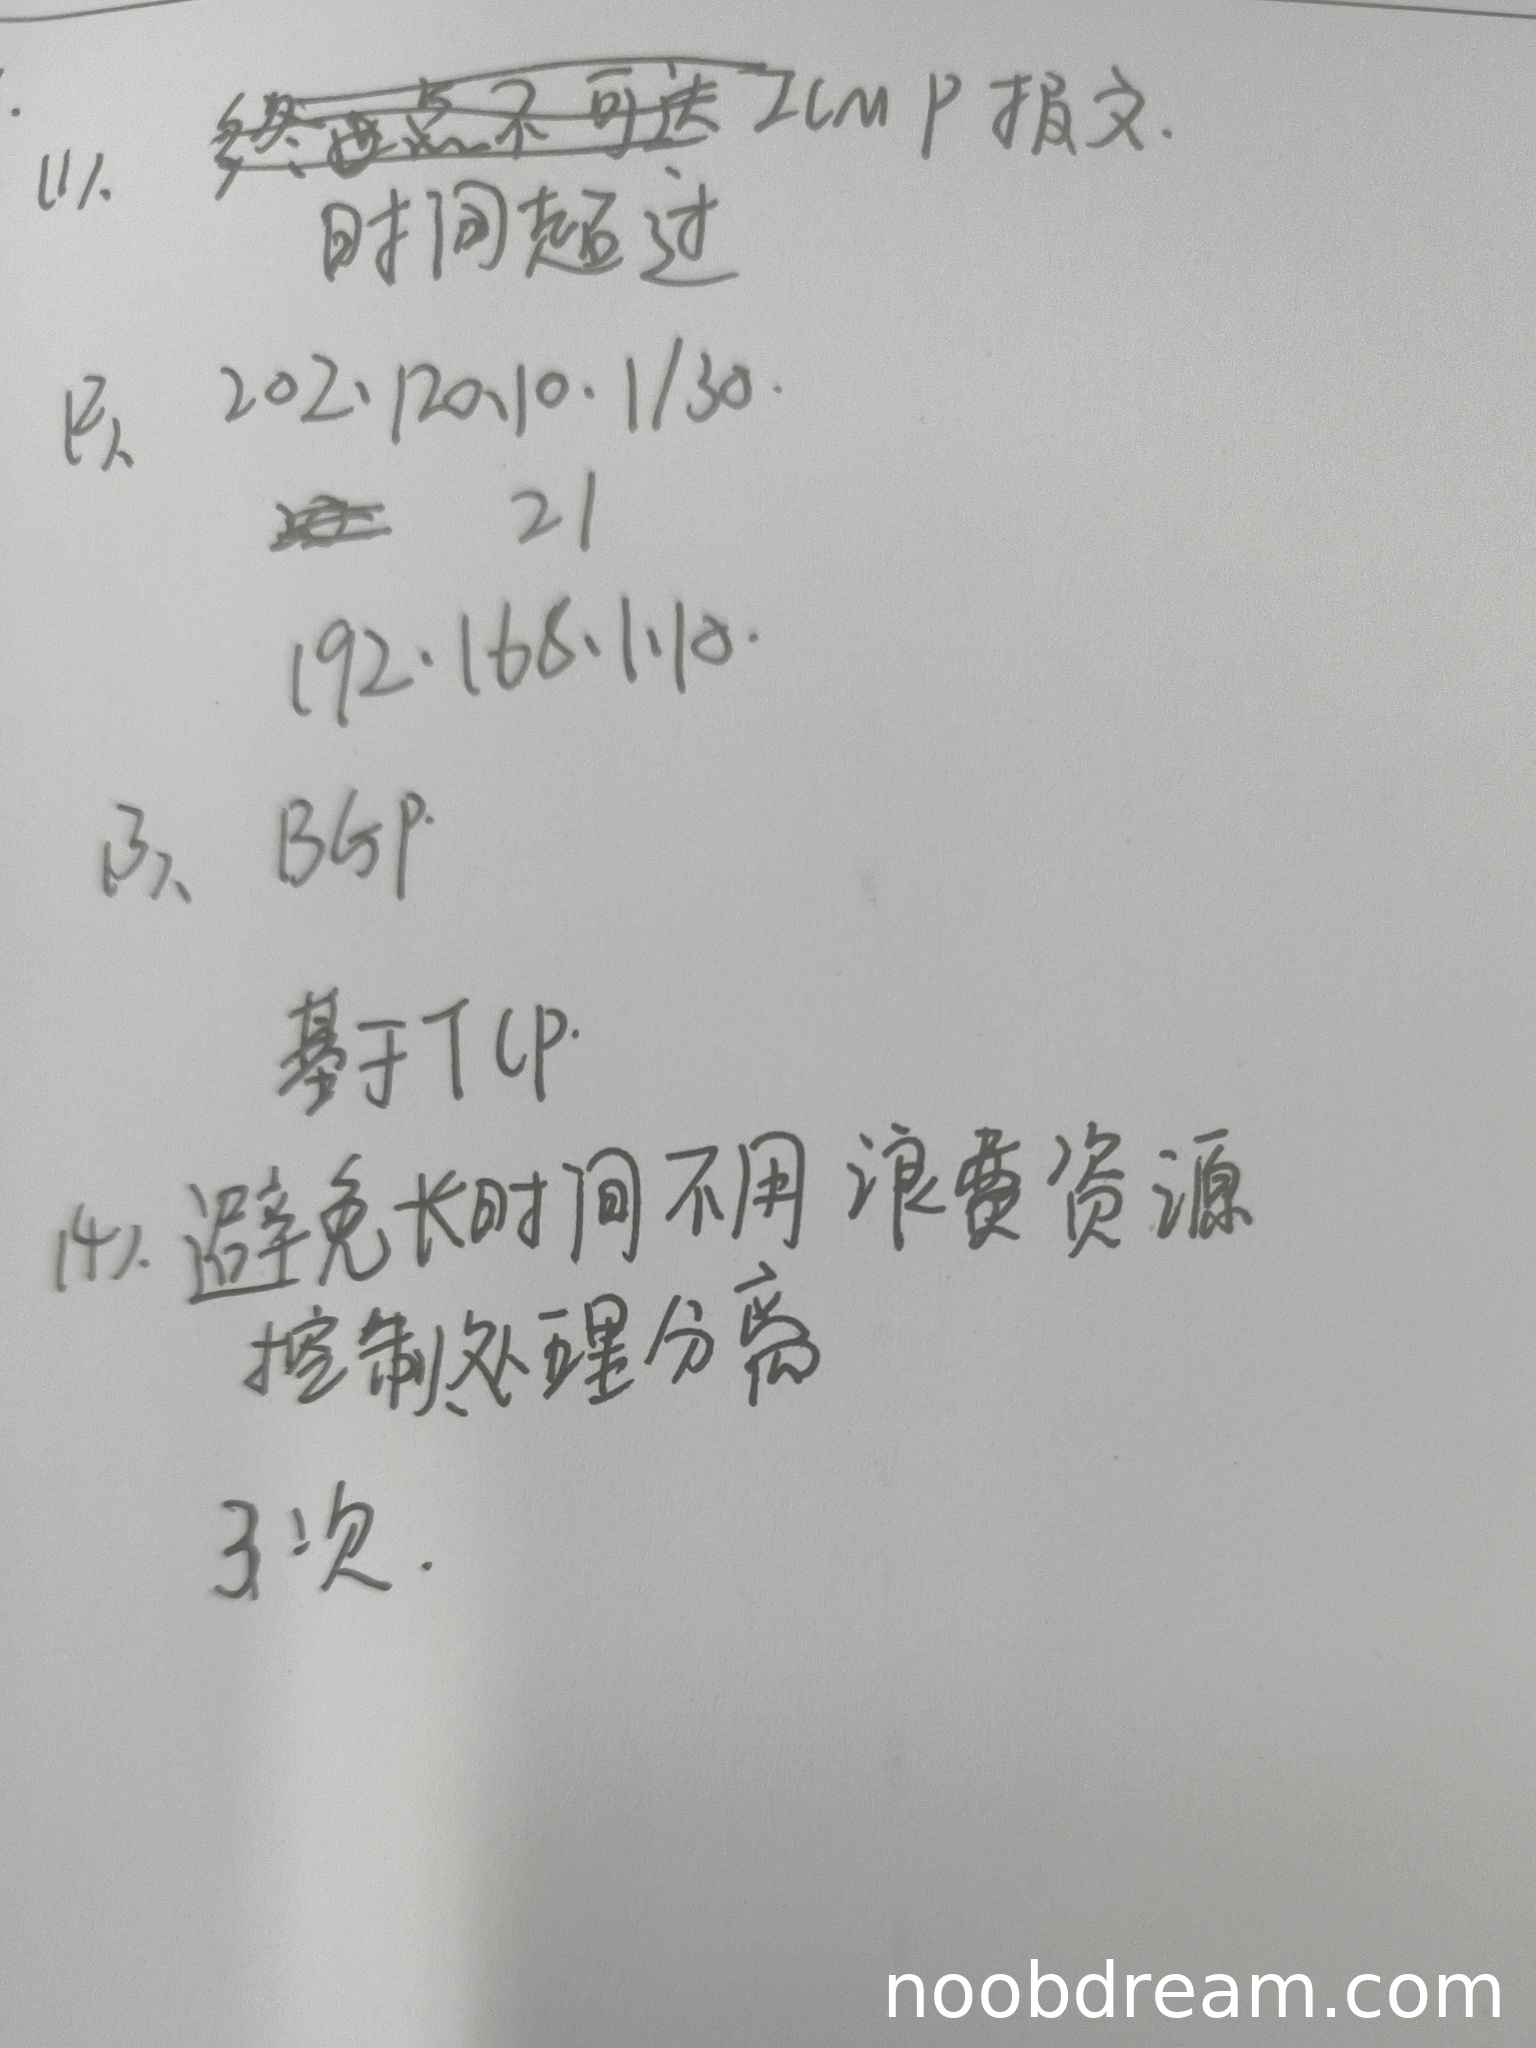 (1). 终点不可达 ICMP报文.
时间超过
(2). 202.120.10.1/30.
21
192.168.1.10.
(3). BGP.
基于TCP.
(4). 避免长时间不用浪费资源
控制处理分离
3次.
noobdream.com